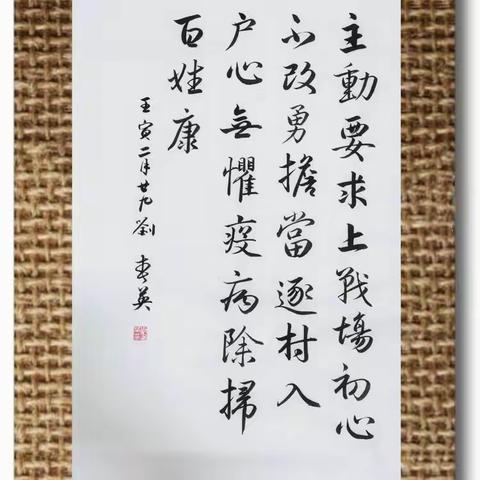 主動要求上戰場初心
不改勇擔當逐村入
户心無懼疫病除掃
百姓康
壬寅二月廿九劉春英